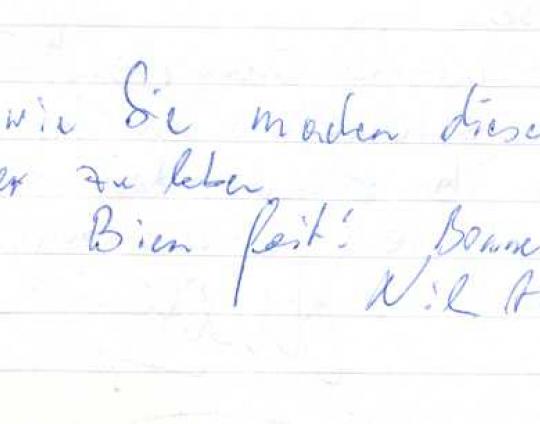 wie Sie machen diese
er zu leben
Bien fait! Bonne
Nils A